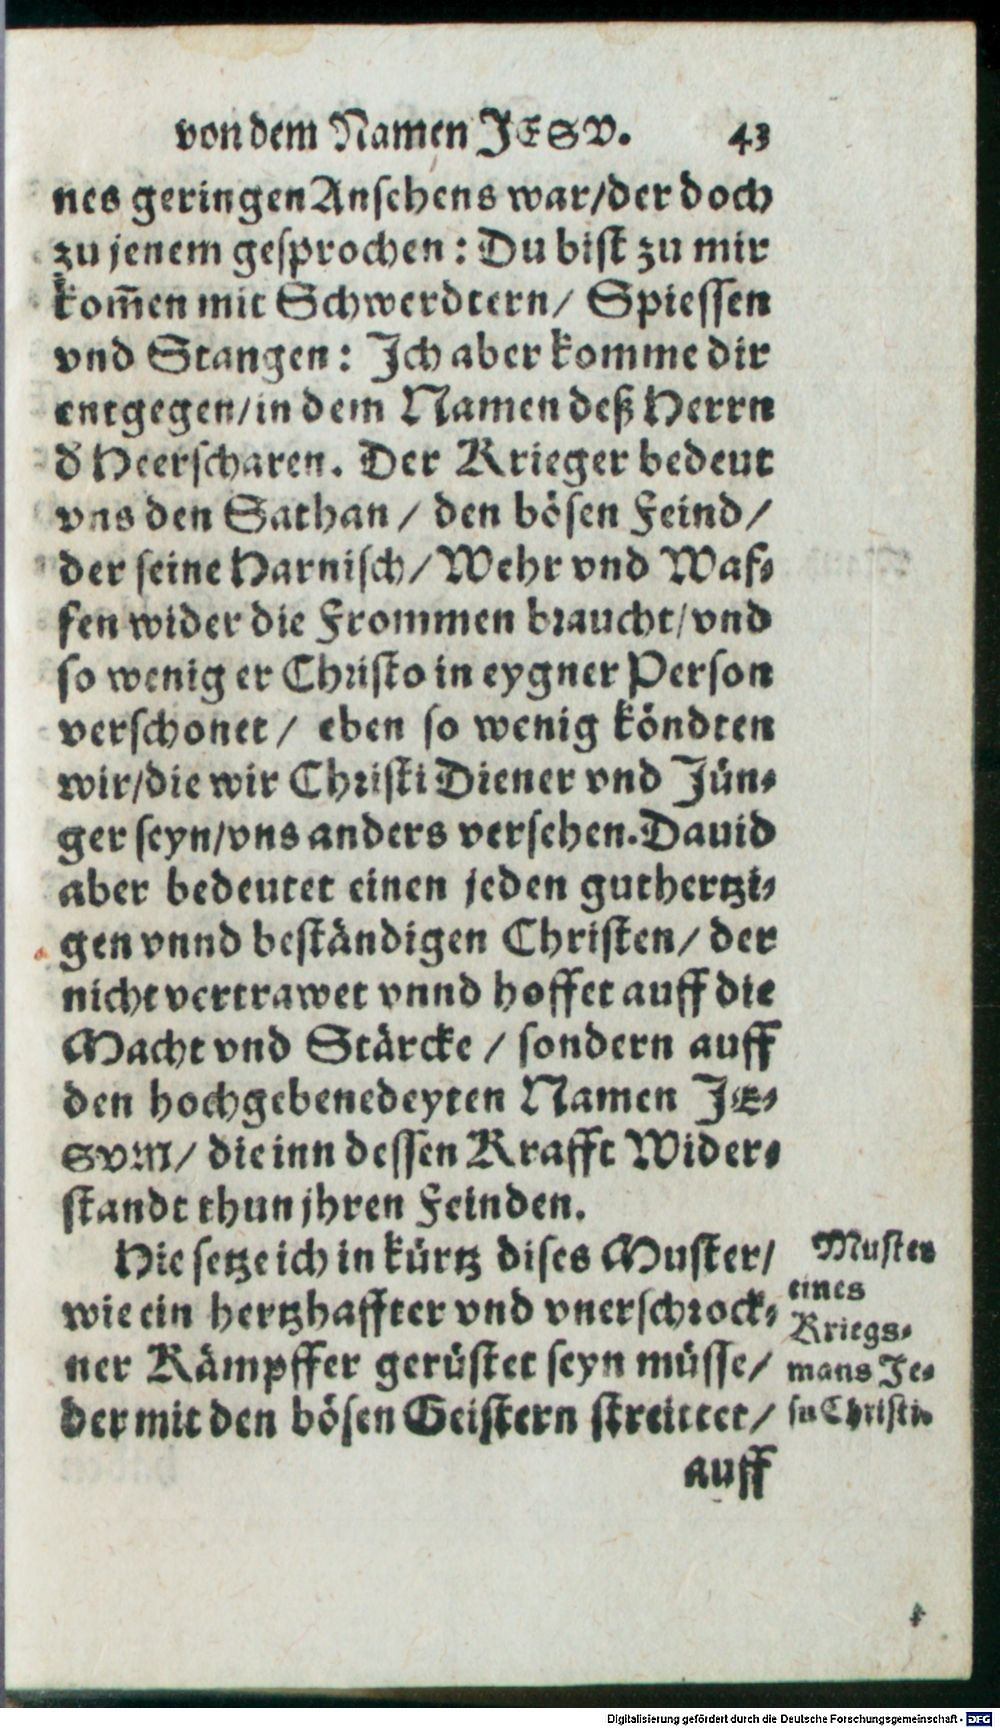 von dem Namen JESV. 43
nes geringen Ansehens war/der doch
zu jenem gesprochen: Du bist zu mir
kom̃en mit Schwerdtern/ Spiessen
vnd Stangen: Jch aber komme dir
entgegen/in dem Namen deß Herrn
d̕ Heerscharen. Der Krieger bedeut
vns den Sathan / den bösen Feind/
der seine Harnisch/Wehr vnd Waf-
fen wider die Frommen braucht/vnd
so wenig er Christo in eygner Person
verschonet / eben so wenig köndten
wir/die wir Christi Diener vnd Jün-
ger seyn/vns anders versehen.Dauid
aber bedeutet einen jeden guthertzi-
gen vnnd beständigen Christen/ der
nicht vertrawet vnnd hoffet auff die
Macht vnd Stärcke / sondern auff
den hochgebenedeyten Namen JE-
SVM/ die inn dessen Krafft Wider-
standt thun jhren Feinden.
Hie setze ich in kürtz dises Muster/
wie ein hertzhaffter vnd vnerschrock-
ner Kämpffer gerüstet seyn müsse/
der mit den bösen Geistern streittet/
auff
Muster
eines
Kriegs-
mans Je-
su Christi.
Digitalisierung gefördert durch die Deutsche Forschungsgemeinschaft - DFG